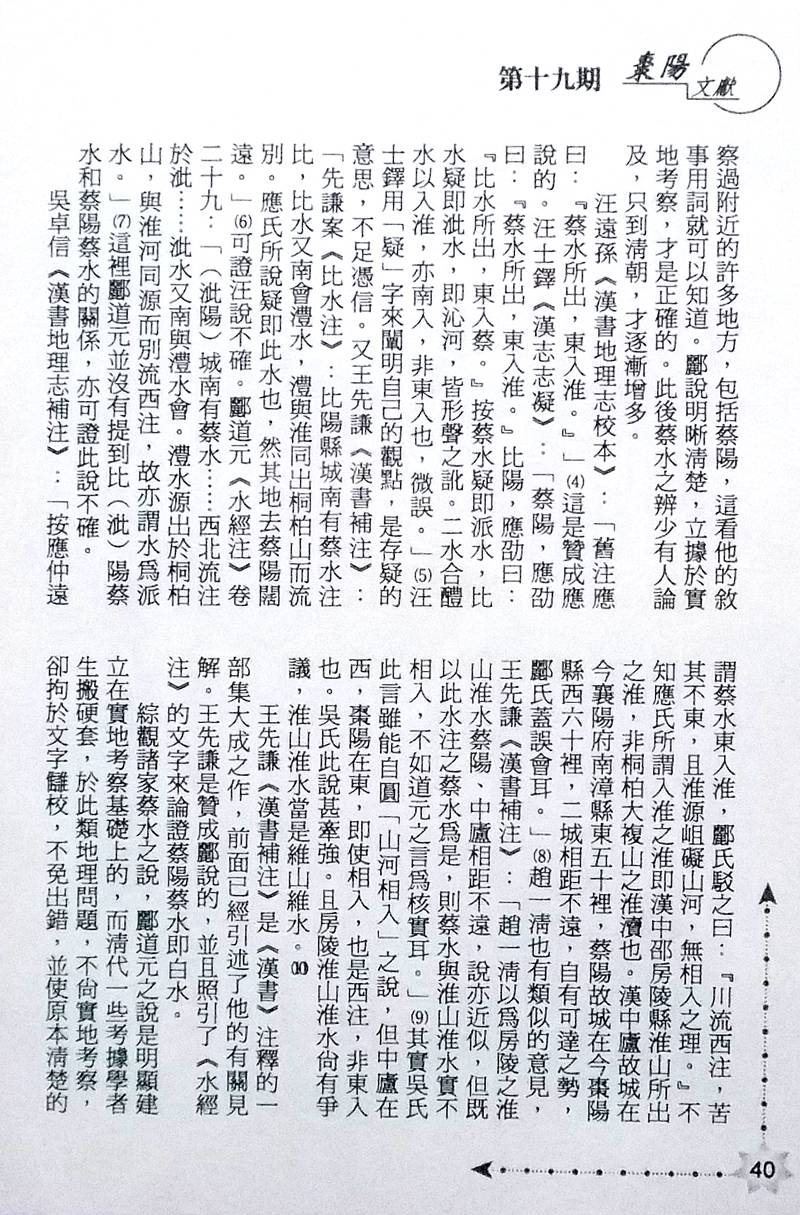 第十九期
棗陽
文獻
察過附近的許多地方，包括蔡陽，這看他的敘
事用詞就可以知道。酈說明晰清楚，立據於實
地考察，才是正確的。此後蔡水之辨少有人論
及，只到清朝，才逐漸增多。
汪遠孫《漢書地理志校本》：「舊注應
曰：『蔡水所出，東入淮。』」⑷這是贊成應
說的。汪士鐸《漢志志凝》：「蔡陽，應劭
曰：『蔡水所出，東入淮。』比陽，應劭曰：
『比水所出，東入蔡。』按蔡水疑即派水，比
水疑即泚水，即沁河，皆形聲之訛。二水合醴
水以入淮，亦南入，非東入也，微誤。」⑸汪
士鐸用「疑」字來闡明自己的觀點，是存疑的
意思，不足憑信。又王先謙《漢書補注》：
「先謙案《比水注》：比陽縣城南有蔡水注
比，比水又南會澧水，澧與淮同出桐柏山而流
別。應氏所說疑即此水也，然其地去蔡陽闊
遠。」⑹可證汪說不確。酈道元《水經注》卷
二十九：「（泚陽）城南有蔡水……西北流注
於泚……泚水又南與澧水會。澧水源出於桐柏
山，與淮河同源而別流西注，故亦謂水爲派
水。」⑺這裡酈道元並沒有提到比（泚）陽蔡
水和蔡陽蔡水的關係，亦可證此說不確。
吳卓信《漢書地理志補注》：「按應仲遠
謂蔡水東入淮，酈氏駁之曰：『川流西注，苦
其不東，且淮源岨礙山河，無相入之理。』不
知應氏所謂入淮之淮即漢中邵房陵縣淮山所出
之淮，非桐柏大複山之淮瀆也。漢中廬故城在
今襄陽府南漳縣東五十裡，蔡陽故城在今棗陽
縣西六十裡，二城相距不遠，自有可達之勢，
酈氏蓋誤會耳。」⑻趙一清也有類似的意見，
王先謙《漢書補注》：「趙一清以爲房陵之淮
山淮水蔡陽、中廬相距不遠，說亦近似，但既
以此水注之蔡水爲是，則蔡水與淮山淮水實不
相入，不如道元之言爲核實耳。」⑼其實吳氏
此言雖能自圓「山河相入」之說，但中廬在
西，棗陽在東，即使相入，也是西注，非東入
也。吳氏此說甚牽強。且房陵淮山淮水尙有爭
議，淮山淮水當是維山維水。⑽
王先謙《漢書補注》是《漢書》注釋的一
部集大成之作，前面已經引述了他的有關見
解。王先謙是贊成酈說的，並且照引了《水經
注》的文字來論證蔡陽蔡水即白水。
綜觀諸家蔡水之說，酈道元之說是明顯建
立在實地考察基礎上的，而清代一些考據學者
生搬硬套，於此類地理問題，不尙實地考察，
卻拘於文字讎校，不免出錯，並使原本清楚的
40